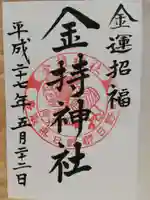 金運招福
金持神社
平成二十七年五月二十二日